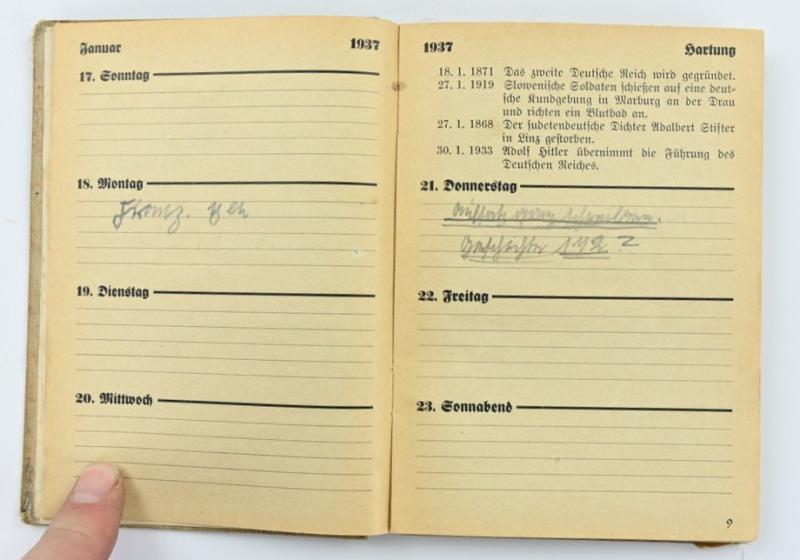 Januar 1937
17. Sonntag
18. Montag
19. Dienstag
20. Mittwoch
1937 Hartung
18. 1. 1871 Das zweite Deutsche Reich wird gegründet.
27. 1. 1919 Slowenische Soldaten schießen auf eine deut-
sche Kundgebung in Marburg an der Drau
und richten ein Blutbad an.
27. 1. 1868 Der sudetendeutsche Dichter Adalbert Stifter
in Linz gestorben.
30. 1. 1933 Adolf Hitler übernimmt die Führung des
Deutschen Reiches.
21. Donnerstag
22. Freitag
23. Sonnabend
9